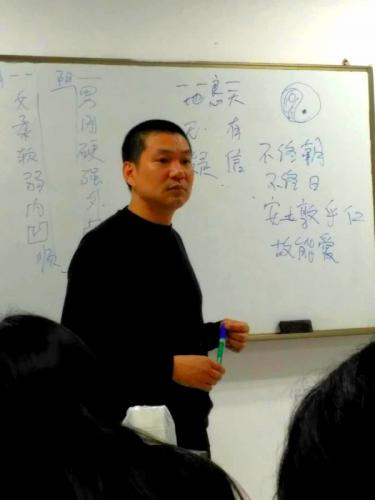 女柔软弱内凹顺
阳一
男刚硬强外
地意天
无有
疑信
不终朝
不终日
安土敦乎仁
故能爱